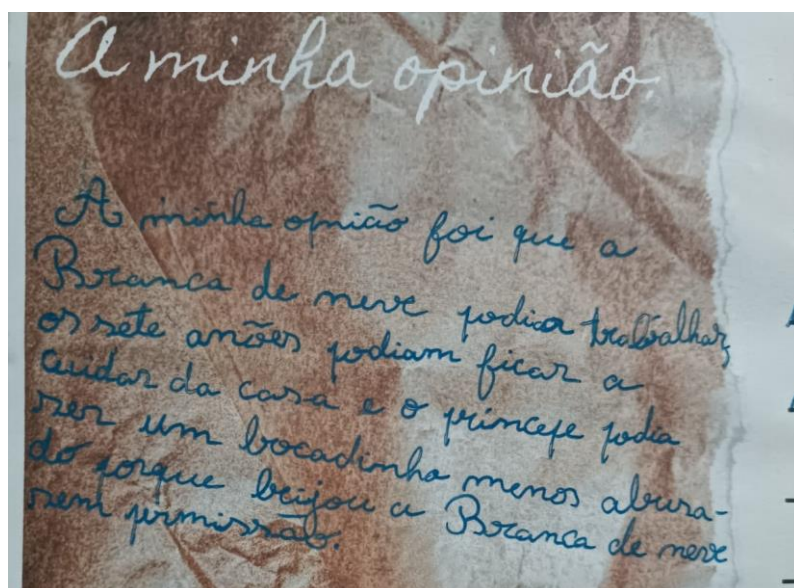 A minha opinião.
A minha opnião foi que a
Branca de neve podia trabalhar,
os sete anões podiam ficar a
cuidar da casa e o príncepe podia
ser um bocadinho menos abusa-
do porque beijou a Branca de neve
sem permissão.